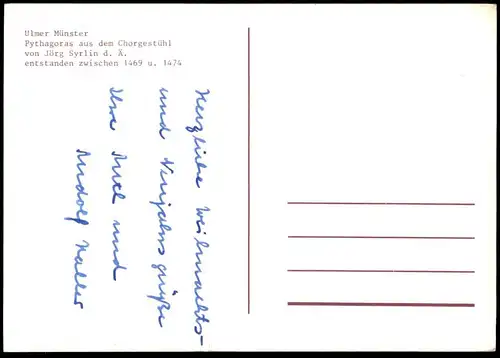 Ulmer Münster
Pythagoras aus dem Chorgestühl
von Jörg Syrlin d. Ä.
entstanden zwischen 1469 u. 1474
Herzliche Weihnachts-
und Neujahrsgrüße
Ihre Ruth und
Rudolf Haller